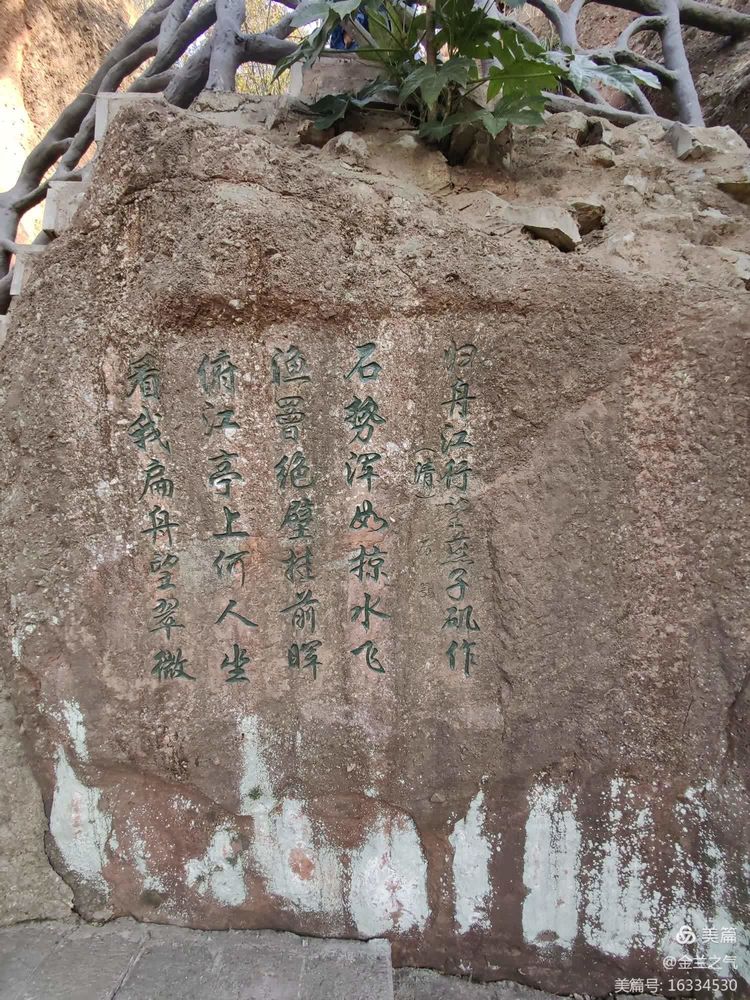 归舟江行望燕子矶作
（清）
石勢浑如掠水飞
渔罾绝壁挂前晖
俯江亭上何人坐
看我扁舟望翠微
美篇
@金兰之气
美篇号: 16334530